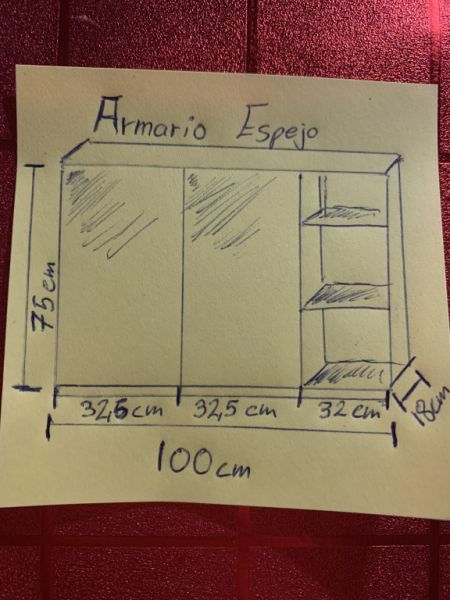 Armario Espejo
75cm
32,5cm 32,5cm 32cm
18cm
100cm